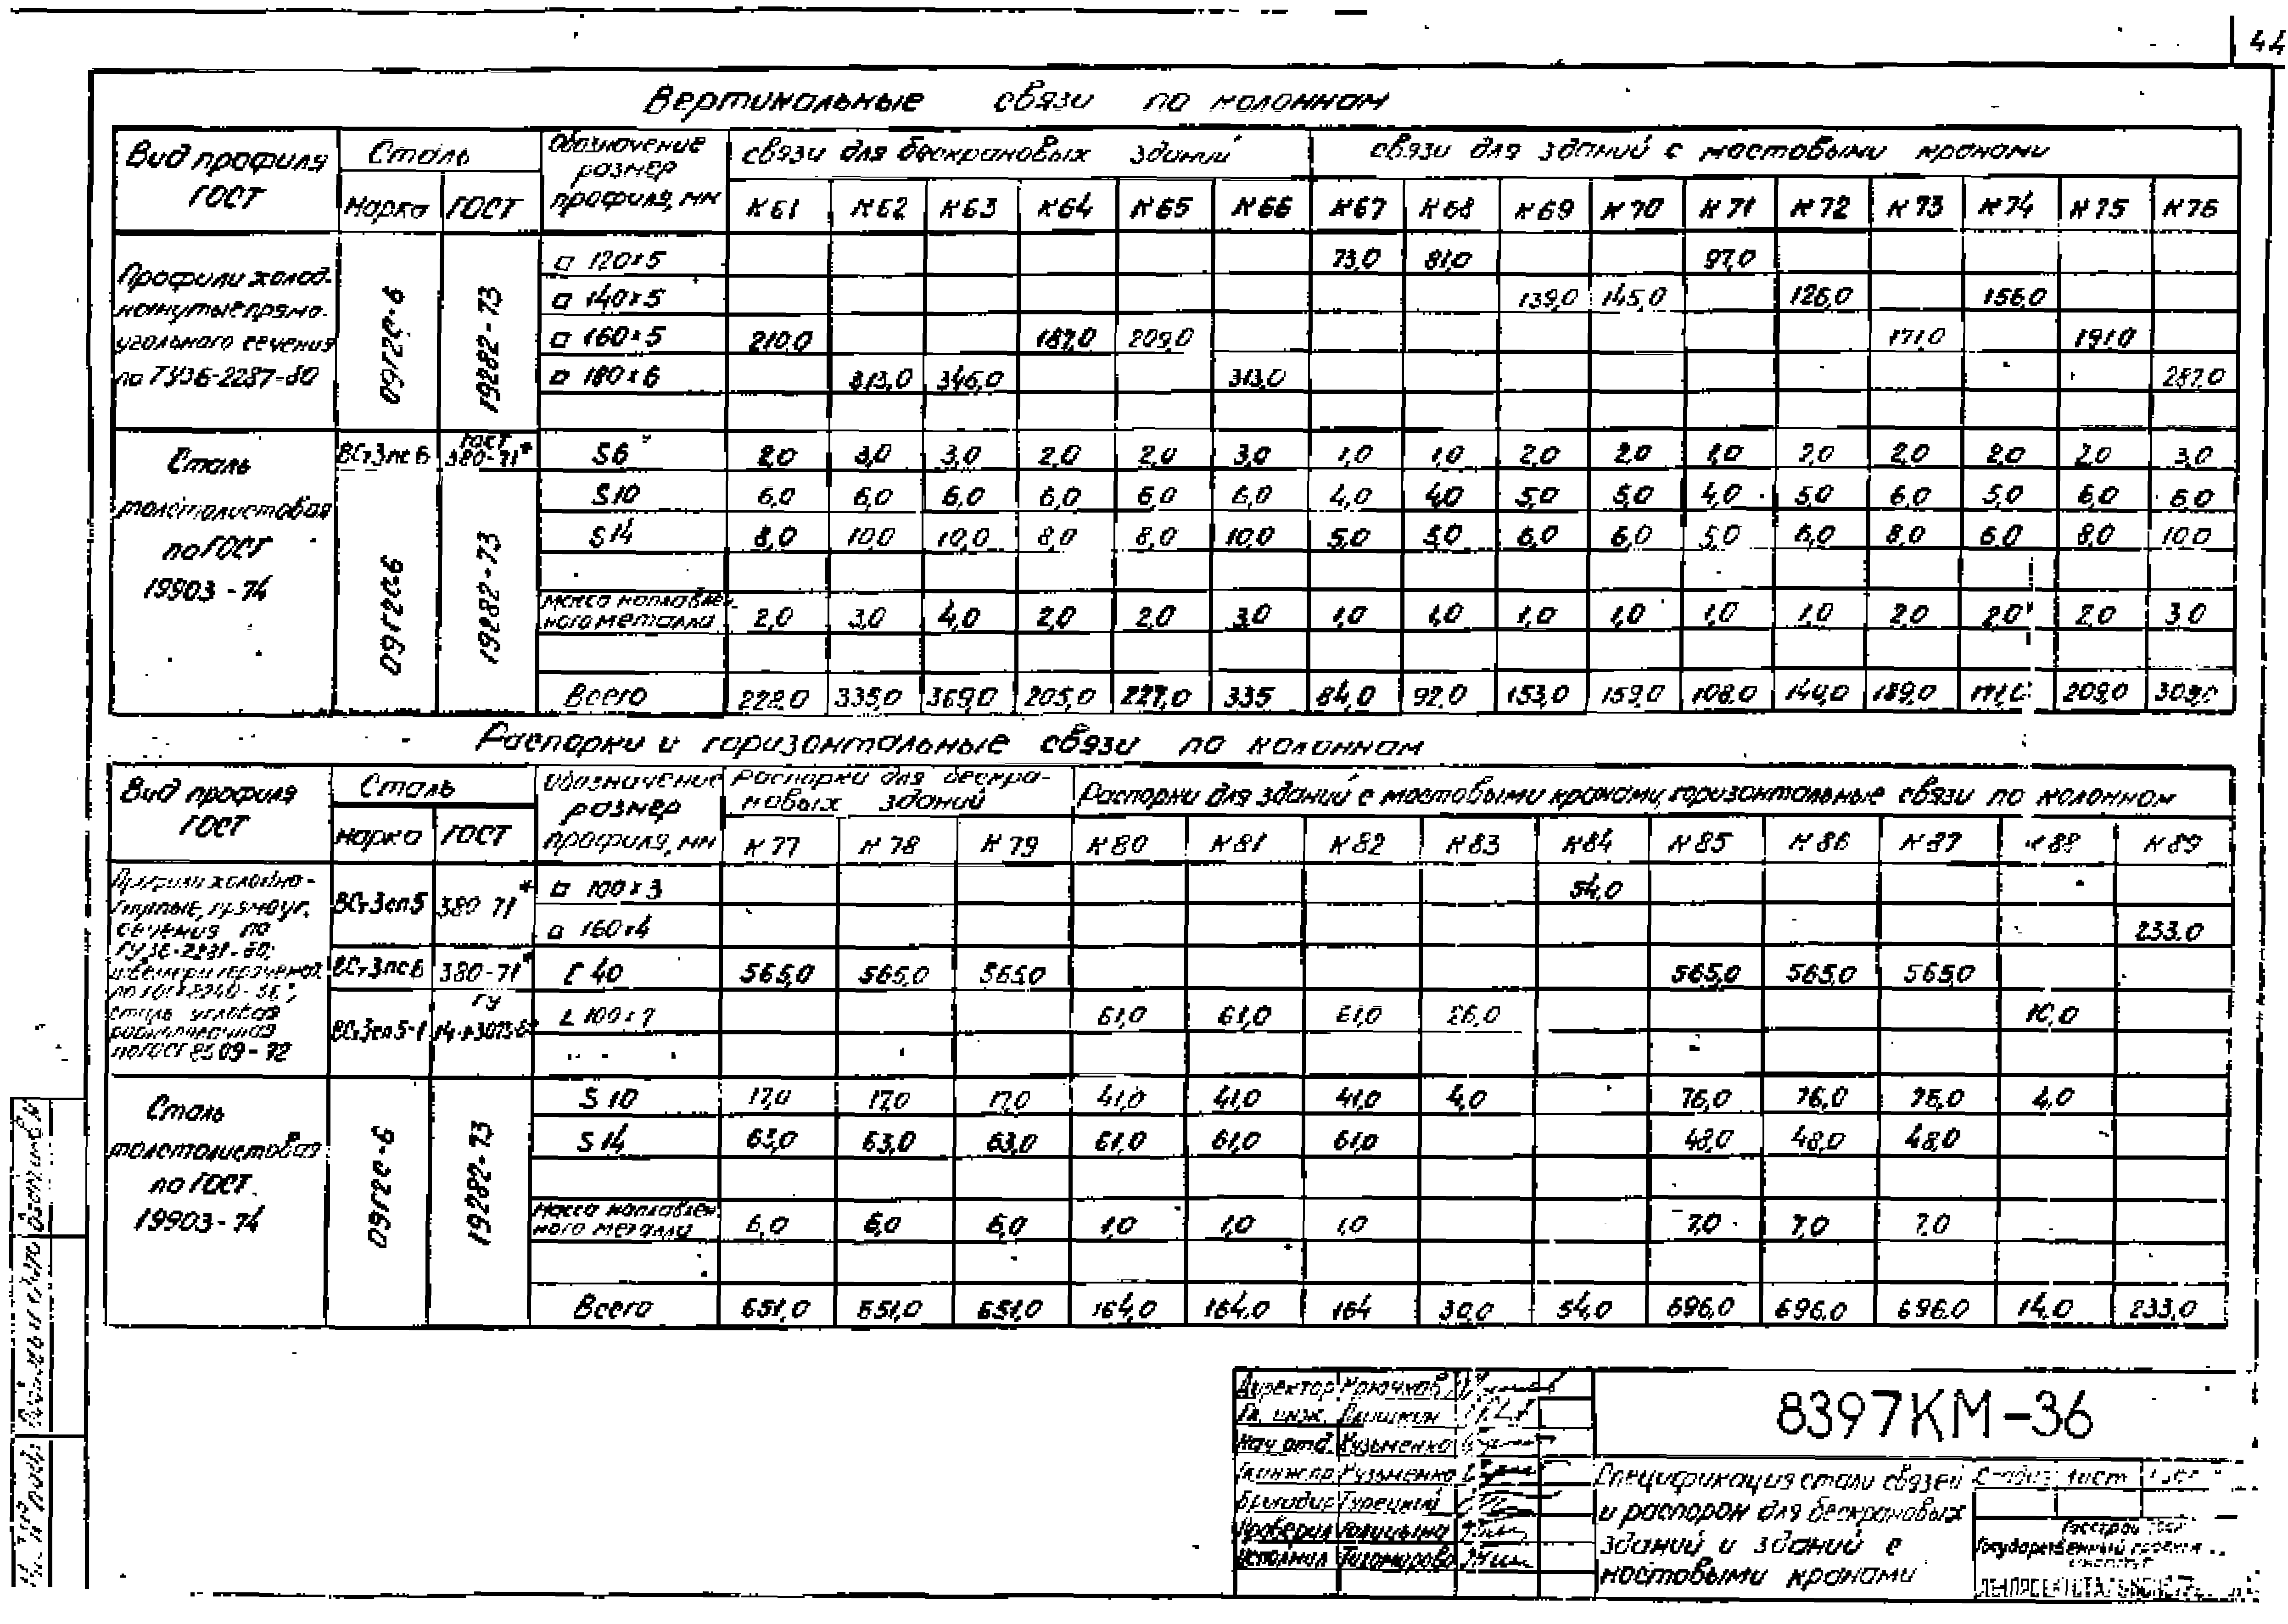 44
Вертикальные связи по колоннам
Вид профиля ГОСТ | Сталь | Обозначение размер профиля, мм | связи для бескрановых зданий | связи для зданий с мостовыми кранами
марка | ГОСТ | К61 | К62 | К63 | К64 | К65 | К66 | К67 | К68 | К69 | К70 | К71 | К72 | К73 | К74 | К75 | К76
Профили холод-
ногнутые прямо-
угольного сечения
по ТУ36-2287-80
09Г2С-6 | 19282-73
□ 120×5 | 73,0 | 81,0 | 97,0
□ 140×5 | 139,0 | 145,0 | 126,0 | 156,0
□ 160×5 | 210,0 | 187,0 | 209,0 | 171,0 | 191,0
□ 180×6 | 313,0 | 346,0 | 313,0 | 287,0
Сталь
толстолистовая
по ГОСТ
19903-74
ВСт3пс6 | ГОСТ 380-71* | S6 | 2,0 | 3,0 | 3,0 | 2,0 | 2,0 | 3,0 | 1,0 | 1,0 | 2,0 | 2,0 | 1,0 | 2,0 | 2,0 | 2,0 | 2,0 | 3,0
09Г2С-6 | 19282-73
S10 | 6,0 | 6,0 | 6,0 | 6,0 | 6,0 | 6,0 | 4,0 | 4,0 | 5,0 | 5,0 | 4,0 | 5,0 | 6,0 | 5,0 | 6,0 | 6,0
S14 | 8,0 | 10,0 | 10,0 | 8,0 | 8,0 | 10,0 | 5,0 | 5,0 | 6,0 | 6,0 | 5,0 | 6,0 | 8,0 | 6,0 | 8,0 | 10,0
Масса наплавлен-
ного металла | 2,0 | 3,0 | 4,0 | 2,0 | 2,0 | 3,0 | 1,0 | 1,0 | 1,0 | 1,0 | 1,0 | 1,0 | 2,0 | 2,0 | 2,0 | 3,0
Всего | 228,0 | 335,0 | 369,0 | 205,0 | 227,0 | 335 | 84,0 | 92,0 | 153,0 | 159,0 | 108,0 | 140,0 | 189,0 | 171,0 | 209,0 | 309,0
Распорки и горизонтальные связи по колоннам
Вид профиля ГОСТ | Сталь | Обозначение размер профиля, мм | Распорки для бескра-
новых зданий | Распорки для зданий с мостовыми кранами, горизонтальные связи по колоннам
марка | ГОСТ | К77 | К78 | К79 | К80 | К81 | К82 | К83 | К84 | К85 | К86 | К87 | К88 | К89
сечения по
швеллеры горячекат.
сталь угловая
равнополочная
по ГОСТ 8509-72
ВСт3сп5 | 380-71* | □ 100×3 | 54,0
□ 160×4 | 233,0
ВСт3пс6 | 380-71* | [ 40 | 565,0 | 565,0 | 565,0 | 565,0 | 565,0 | 565,0
ВСт3сп5-1 | ТУ | L 100×7 | 61,0 | 61,0 | 61,0 | 26,0 | 10,0
Сталь
толстолистовая
по ГОСТ
19903-74
09Г2С-6 | 19282-73
S10 | 17,0 | 17,0 | 17,0 | 41,0 | 41,0 | 41,0 | 4,0 | 76,0 | 76,0 | 76,0 | 4,0
S14 | 63,0 | 63,0 | 63,0 | 61,0 | 61,0 | 61,0 | 48,0 | 48,0 | 48,0
Масса наплавлен-
ного металла | 6,0 | 6,0 | 6,0 | 1,0 | 1,0 | 1,0 | 7,0 | 7,0 | 7,0
Всего | 651,0 | 651,0 | 651,0 | 164,0 | 164,0 | 164 | 30,0 | 54,0 | 696,0 | 696,0 | 696,0 | 14,0 | 233,0
Директор Крючков
Гл. инж.
Нач. отд. Кузьменко
Гл.инж.пр. Кузьменко
Бригадир Турецкий
Проверил Голицына
Исполнил Тихомирова
8397КМ-36
Спецификация стали связей
и распорок для бескрановых
зданий и зданий с
мостовыми кранами
Стадия Лист
Госстрой
Государственный
институт